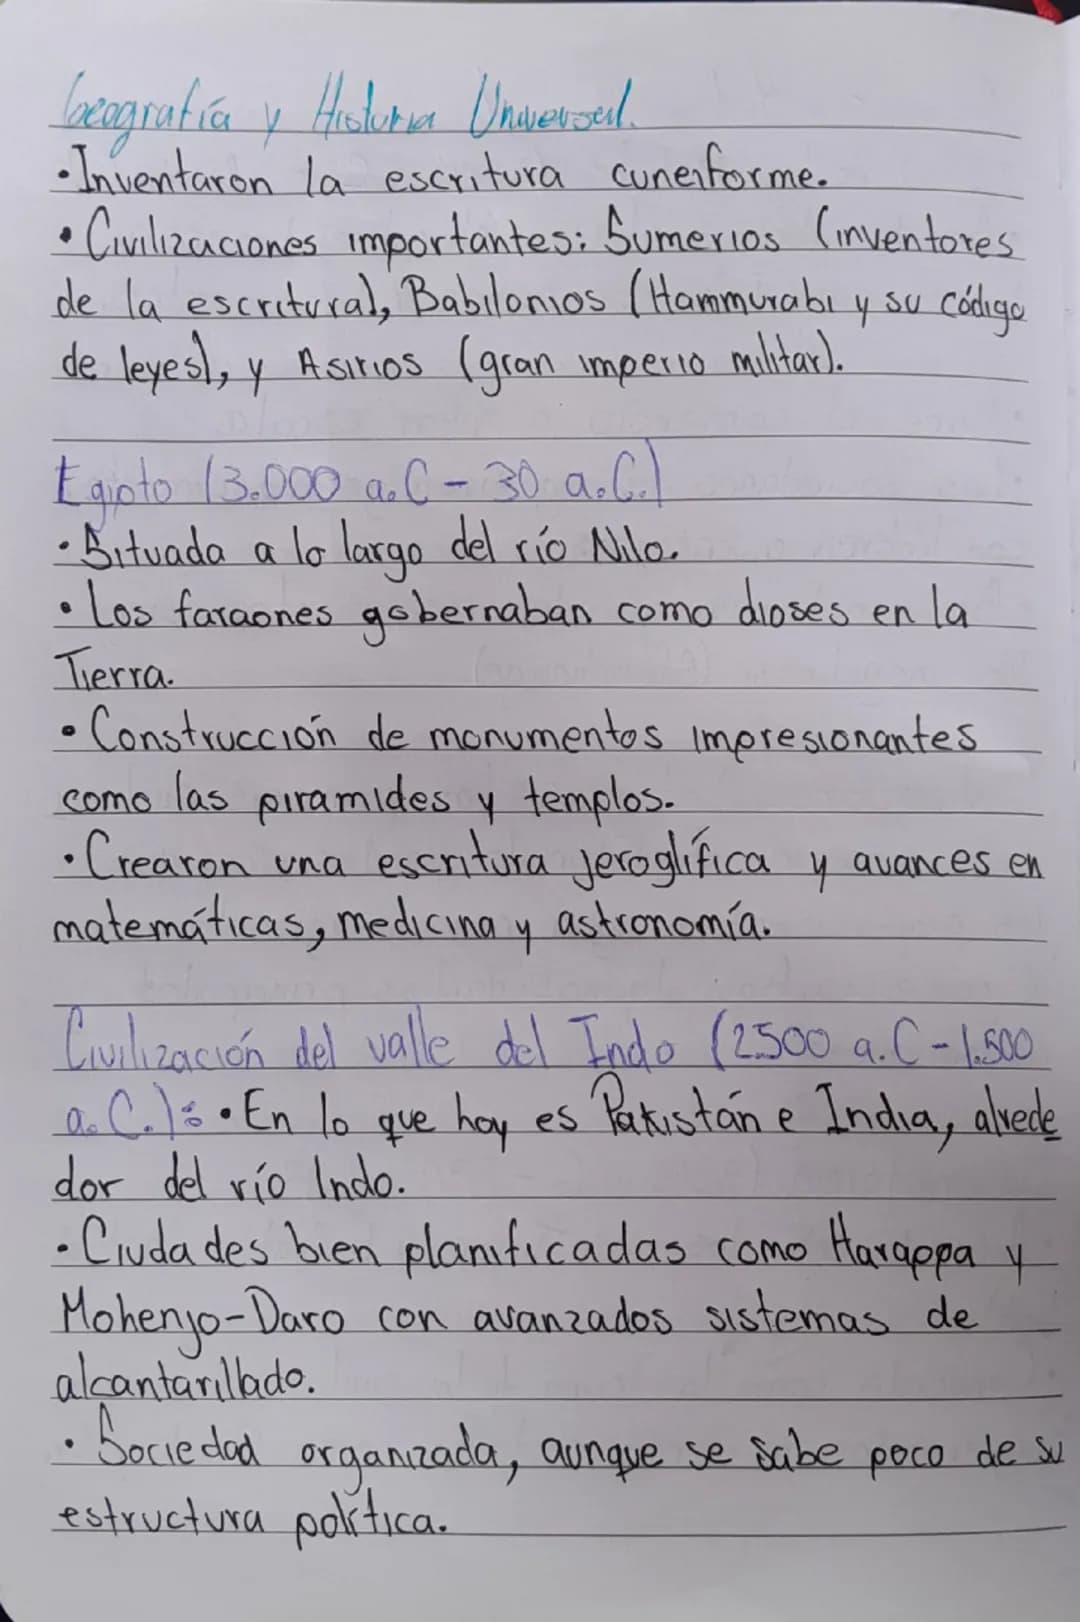 Geografía y Historia Universal.
• Inventaron la escritura cuneiforme.
• Civilizaciones importantes: Sumerios (inventores
de la escritura), Babilonios (Hammurabi y su código
de leyes), y Asirios (gran imperio militar).
Egipto (3.000 a.C - 30 a.C.)
• Situada a lo largo del río Nilo.
• Los faraones gobernaban como dioses en la
Tierra.
• Construcción de monumentos impresionantes
como las piramides y templos.
• Crearon una escritura jeroglífica y avances en
matemáticas, medicina y astronomía.
Civilización del valle del Indo (2.500 a.C - 1.500
a.C.): • En lo que hoy es Pakistán e India, alrede
dor del río Indo.
• Ciudades bien planificadas como Harappa y
Mohenjo-Daro con avanzados sistemas de
alcantarillado.
• Sociedad organizada, aunque se sabe poco de su
estructura política.